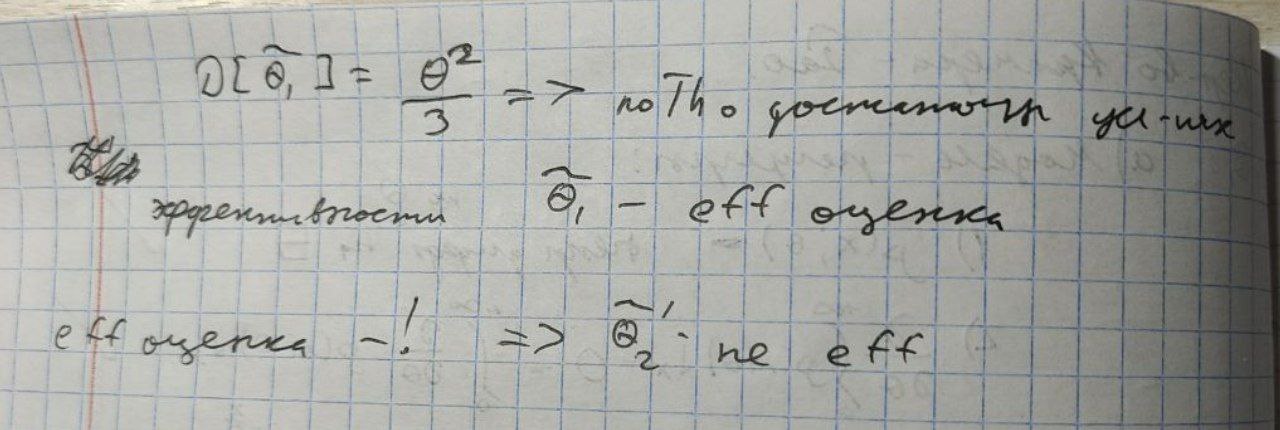 D[θ̃₁] = θ²/3 => по Th о достаточн усл-иях
эффективности θ̃₁ – eff оценка
eff оценка – ! => θ̃₂' - не eff